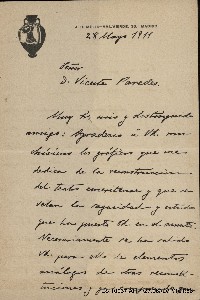 28 Mayo 1911
Señor
D. Vicente Paredes.
Muy Sr. mio y distinguido
amigo: Agradezco á Vd. mu-
chísimo los gráficos que me
dedica de la reconstrucción
del teatro emeritense y que re-
velan la sagacidad y estudio
que ha puesto Vd. en el asunto.
Necesariamente se ha valido
Vd. para ello de elementos
análogos de otras reconsti-
tuciones y